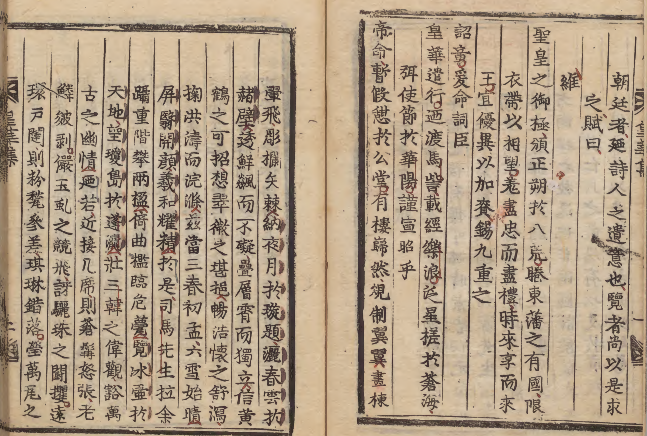 皇華集
朝廷者廼詩人之遺意也覽者尚以是求
之賦曰
維
聖皇之御極頒正朔於八荒睠東藩之有國限
衣帶以相望老盡忠而盡禮時來享而來
王宜優異以加賚錫九重之
詔章爰命詞臣
皇華遣行迺渡馬訾載經樂浪泛星槎於蒼海
弭使節於華陽謹宣昭乎
帝命暫假憇於公堂有樓巋然規制翼翼畫棟
翬飛彫矢棘納夜月於璇題灑春雲於
赭壁透鮮飈而不礙疊層霄而獨立信黄
鶴之可招想翠微之堪挹暢浩懷之舒瀉
掬洪濤而浣滌茲當三春初孟六雪始晴
屏翳開顔羲和耀精於是司馬先生拉余
躡重階攀兩楹倚曲檻臨危甍覽冰壺於
天地望瓊島於蓬瀛壯三韓之偉觀豁萬
古之幽情廼若近接几席則蒼髯怒張老
鱗皴剥儼玉虬之競飛訝驪珠之鬪攫遠
環戸闥則粉甓參差琪琳錯落瑩萬瓦之
皇華集